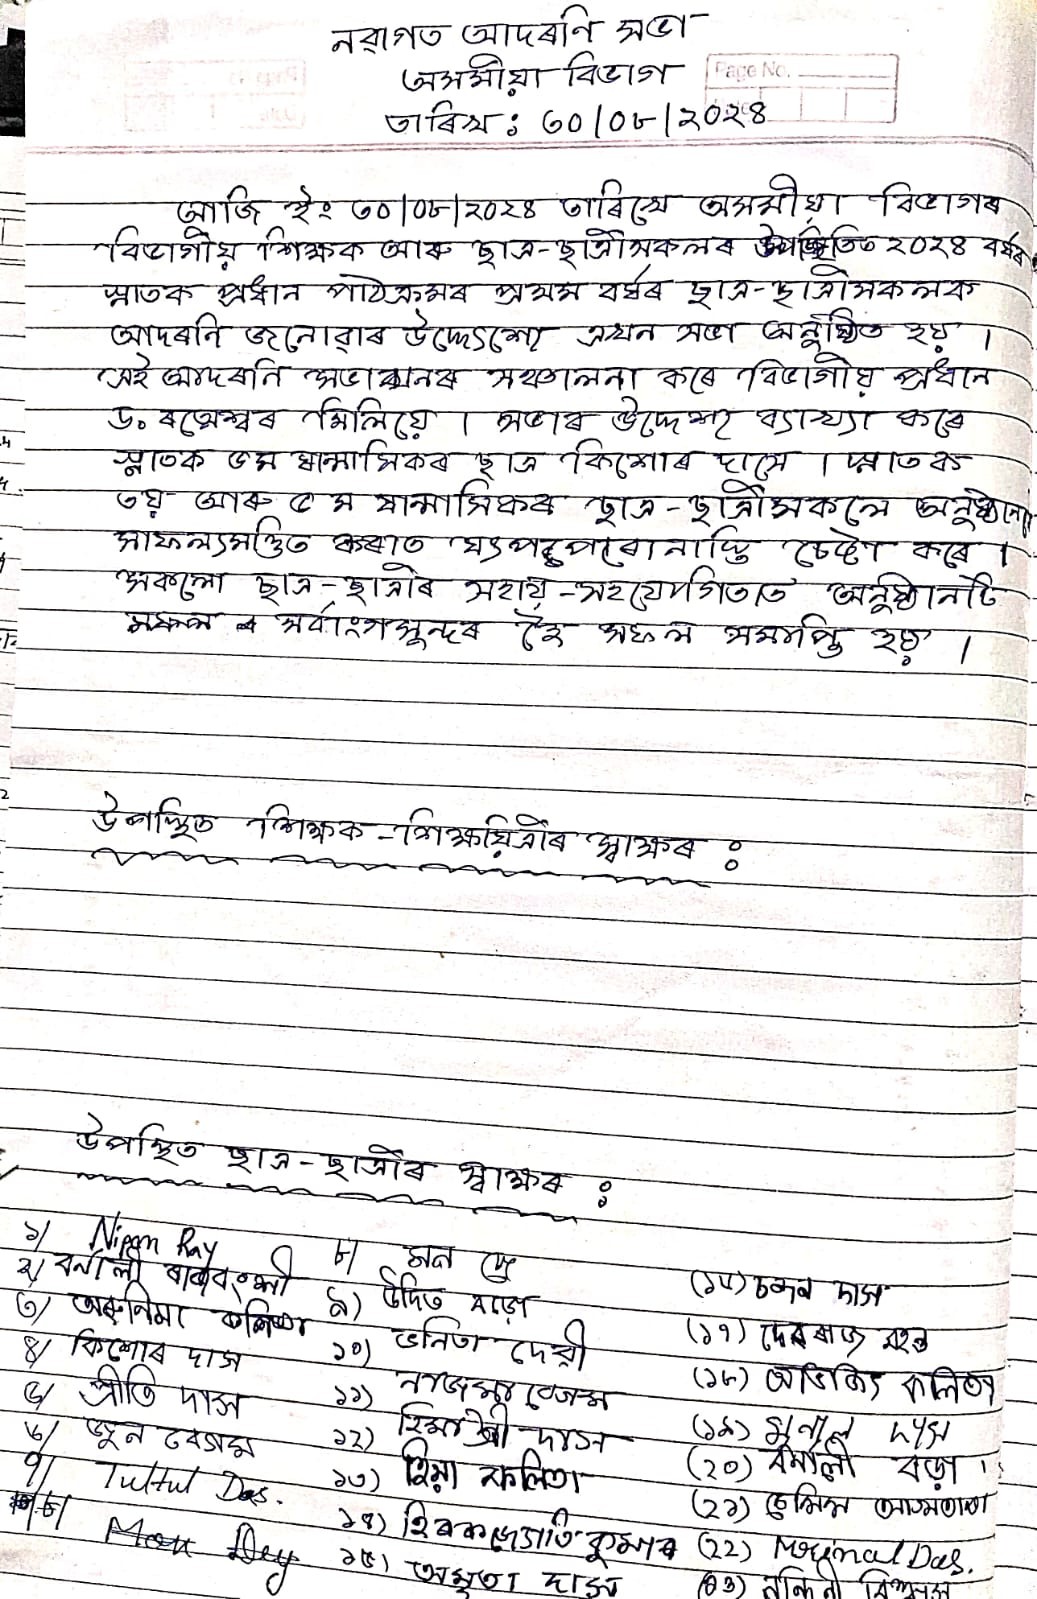 নৱাগত আদৰণি সভা
অসমীয়া বিভাগ
Page No.
তাৰিখ : ৩০/০৮/২০২৪
আজি ইং ৩০/০৮/২০২৪ তাৰিখে অসমীয়া বিভাগৰ
বিভাগীয় শিক্ষক আৰু ছাত্ৰ-ছাত্ৰীসকলৰ উপস্থিতিত ২০২৪ বৰ্ষৰ
স্নাতক প্ৰধান পাঠ্যক্ৰমৰ প্ৰথম বৰ্ষৰ ছাত্ৰ-ছাত্ৰীসকলক
আদৰণি জনোৱাৰ উদ্দেশ্যে এখন সভা অনুষ্ঠিত হয় ।
এই আদৰণি সভাখনৰ সঞ্চালনা কৰে বিভাগীয় প্ৰধান
ড০ ৰত্নেশ্বৰ মিলিয়ে । সভাৰ উদ্দেশ্য ব্যাখ্যা কৰে
স্নাতক ৫ম ষান্মাসিকৰ ছাত্ৰ কিশোৰ দাসে । স্নাতক
৩য় আৰু ৫ম ষান্মাসিকৰ ছাত্ৰ-ছাত্ৰীসকলে
সাফল্যমণ্ডিত কৰাত যৎপৰোনাস্তি চেষ্টা কৰে ।
সকলো ছাত্ৰ-ছাত্ৰীৰ সহায়-সহযোগিতাত অনুষ্ঠানটি
সৰ্বাংগসুন্দৰ হৈ সফল সমাপ্তি হয় ।
উপস্থিত শিক্ষক-শিক্ষয়িত্ৰীৰ স্বাক্ষৰ :
উপস্থিত ছাত্ৰ-ছাত্ৰীৰ স্বাক্ষৰ :
১/ Nipon Ray
২/ বৰ্নালী ৰাজবংশী
৩/ অৰুনিমা কলিতা
৪/ কিশোৰ দাস
৫/ প্ৰীতি দাস
৬/ জুন বেগম
৭/ Tultul Das.
৮/ Mon Dey
৮/ মন দে
৯) উদিত বড়ো
১০) ভনিতা দেৱী
১১) নাজমা বেগম
১২) হিমাশ্ৰী দাস
১৩) হিয়া কলিতা
১৪) হিৰকজ্যোতি কুমাৰ
১৫) অমৃতা দাস
(১৬) চন্দন দাস
(১৭) দেৱৰাজ মহন্ত
(১৮) অভিজিৎ কলিতা
(১৯) মৃনাল দাস
(২০) বৰ্নালী বড়া
(২১)
(২২) Mrinal Das.
(২৩) নন্দিনী বিশ্বাস